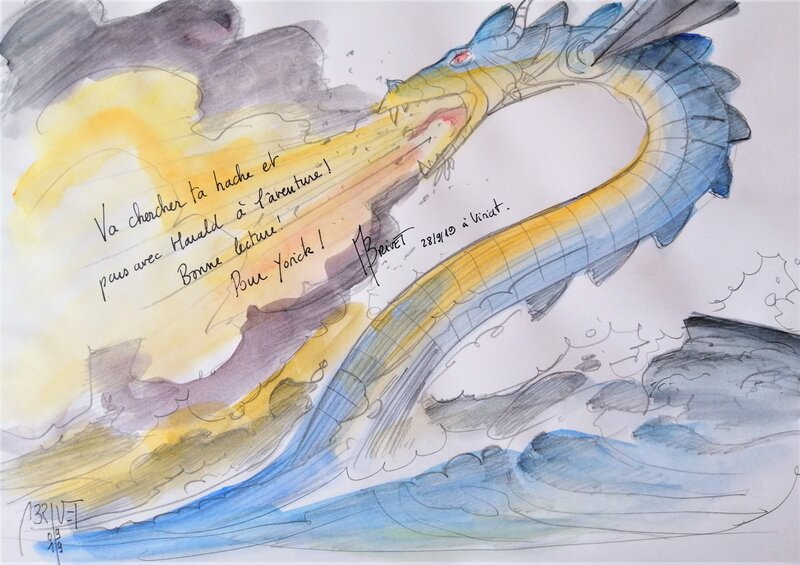 Va chercher ta hache et
pars avec Harald à l'aventure!
Bonne lecture!
Pour Yorick!
MBRIVET 28/9/19 à Viriat.
BRIVET